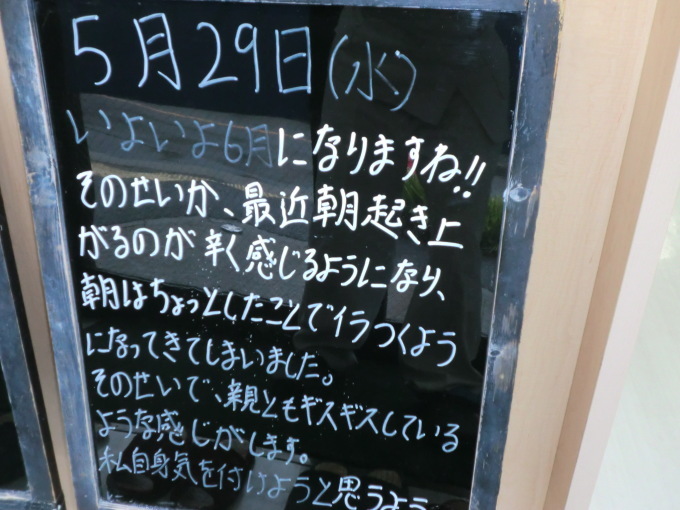 5月29日(水)
いよいよ6月になりますね!!
そのせいか、最近朝起き上
がるのが辛く感じるようになり、
朝はちょっとしたことでイラつくよう
になってきてしまいました。
そのせいで、親ともギスギスしている
ような感じがします。
私自身気を付けようと思うよう